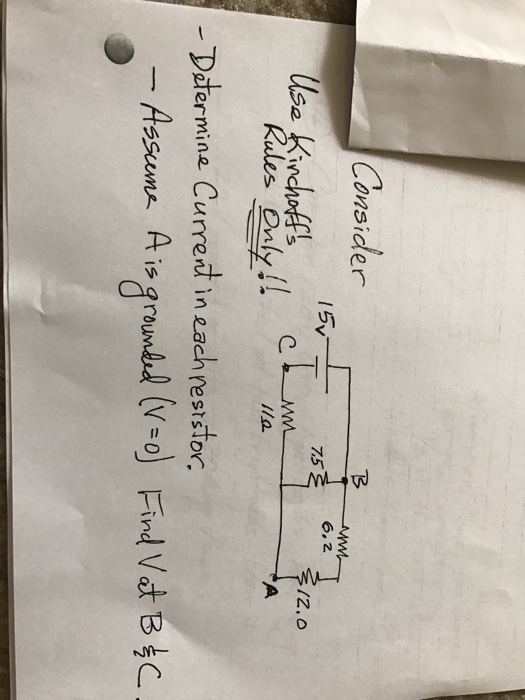 Consider
Use Kirchoff's
Rules Only!!
15v
B
6.2
7.5
12.0
C
11Ω
A
- Determine Current in each resistor.
- Assume A is grounded (V=0) Find V at B & C.